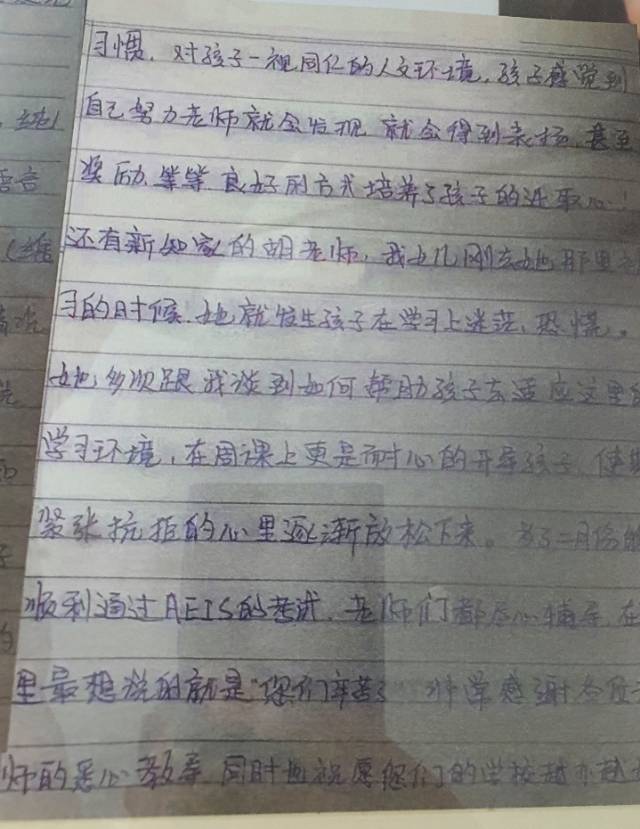 习惯，对孩子一视同仁的人文环境，孩子感觉到
自己努力老师就会发现 就会得到表扬，甚至
奖励，等等 良好的方式培养了孩子的进取心！
还有新加家的胡老师，我女儿刚去她那里
习的时候，她就发生孩子在学习上迷茫，恐慌。
她多次跟我谈到如何帮助孩子去适应这里
学习环境，在周课上更是耐心的开导孩子，使
紧张抗拒的心里逐渐放松下来。为了二月份
顺利通过AEIS的考试，老师们都尽心辅导，在
里最想说的就是"您们辛苦了" 非常感谢各位
师的悉心教导 同时也祝愿您们的学校越办越